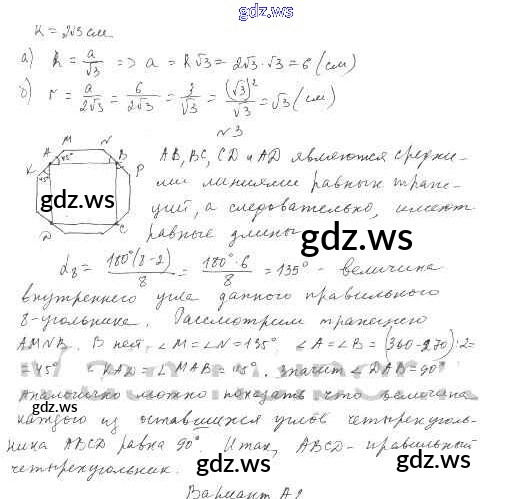 gdz.ws
R = 2√3 см
а) R = a/√3 => a = R√3 = 2√3·√3 = 6 (см)
б) r = a/2√3 = 6/2√3 = 3/√3 = (√3)²/√3 = √3 (см)
N3
M N
A B
K P
45° 45°
D C
AB, BC, CD и AD являются средни-
ми линиями равных трапе-
ций, а следовательно, имеют
равные длины
gdz.ws
gdz.ws
α₈ = 180°(8-2)/8 = 180°·6/8 = 135° - величина
внутреннего угла данного правильного
8-угольника. Рассмотрим трапецию
AMNB. В ней ∠M = ∠N = 135° ∠A = ∠B = (360-270):2=
= 45° ∠KAD = ∠MAB = 45°, значит ∠DAB = 90°
Аналогично можно показать что величина
каждого из оставшихся углов четырехуголь-
ника ABCD равна 90°. Итак, ABCD - правильный
четырехугольник.
gdz.ws
gdz.ws
Вариант А2